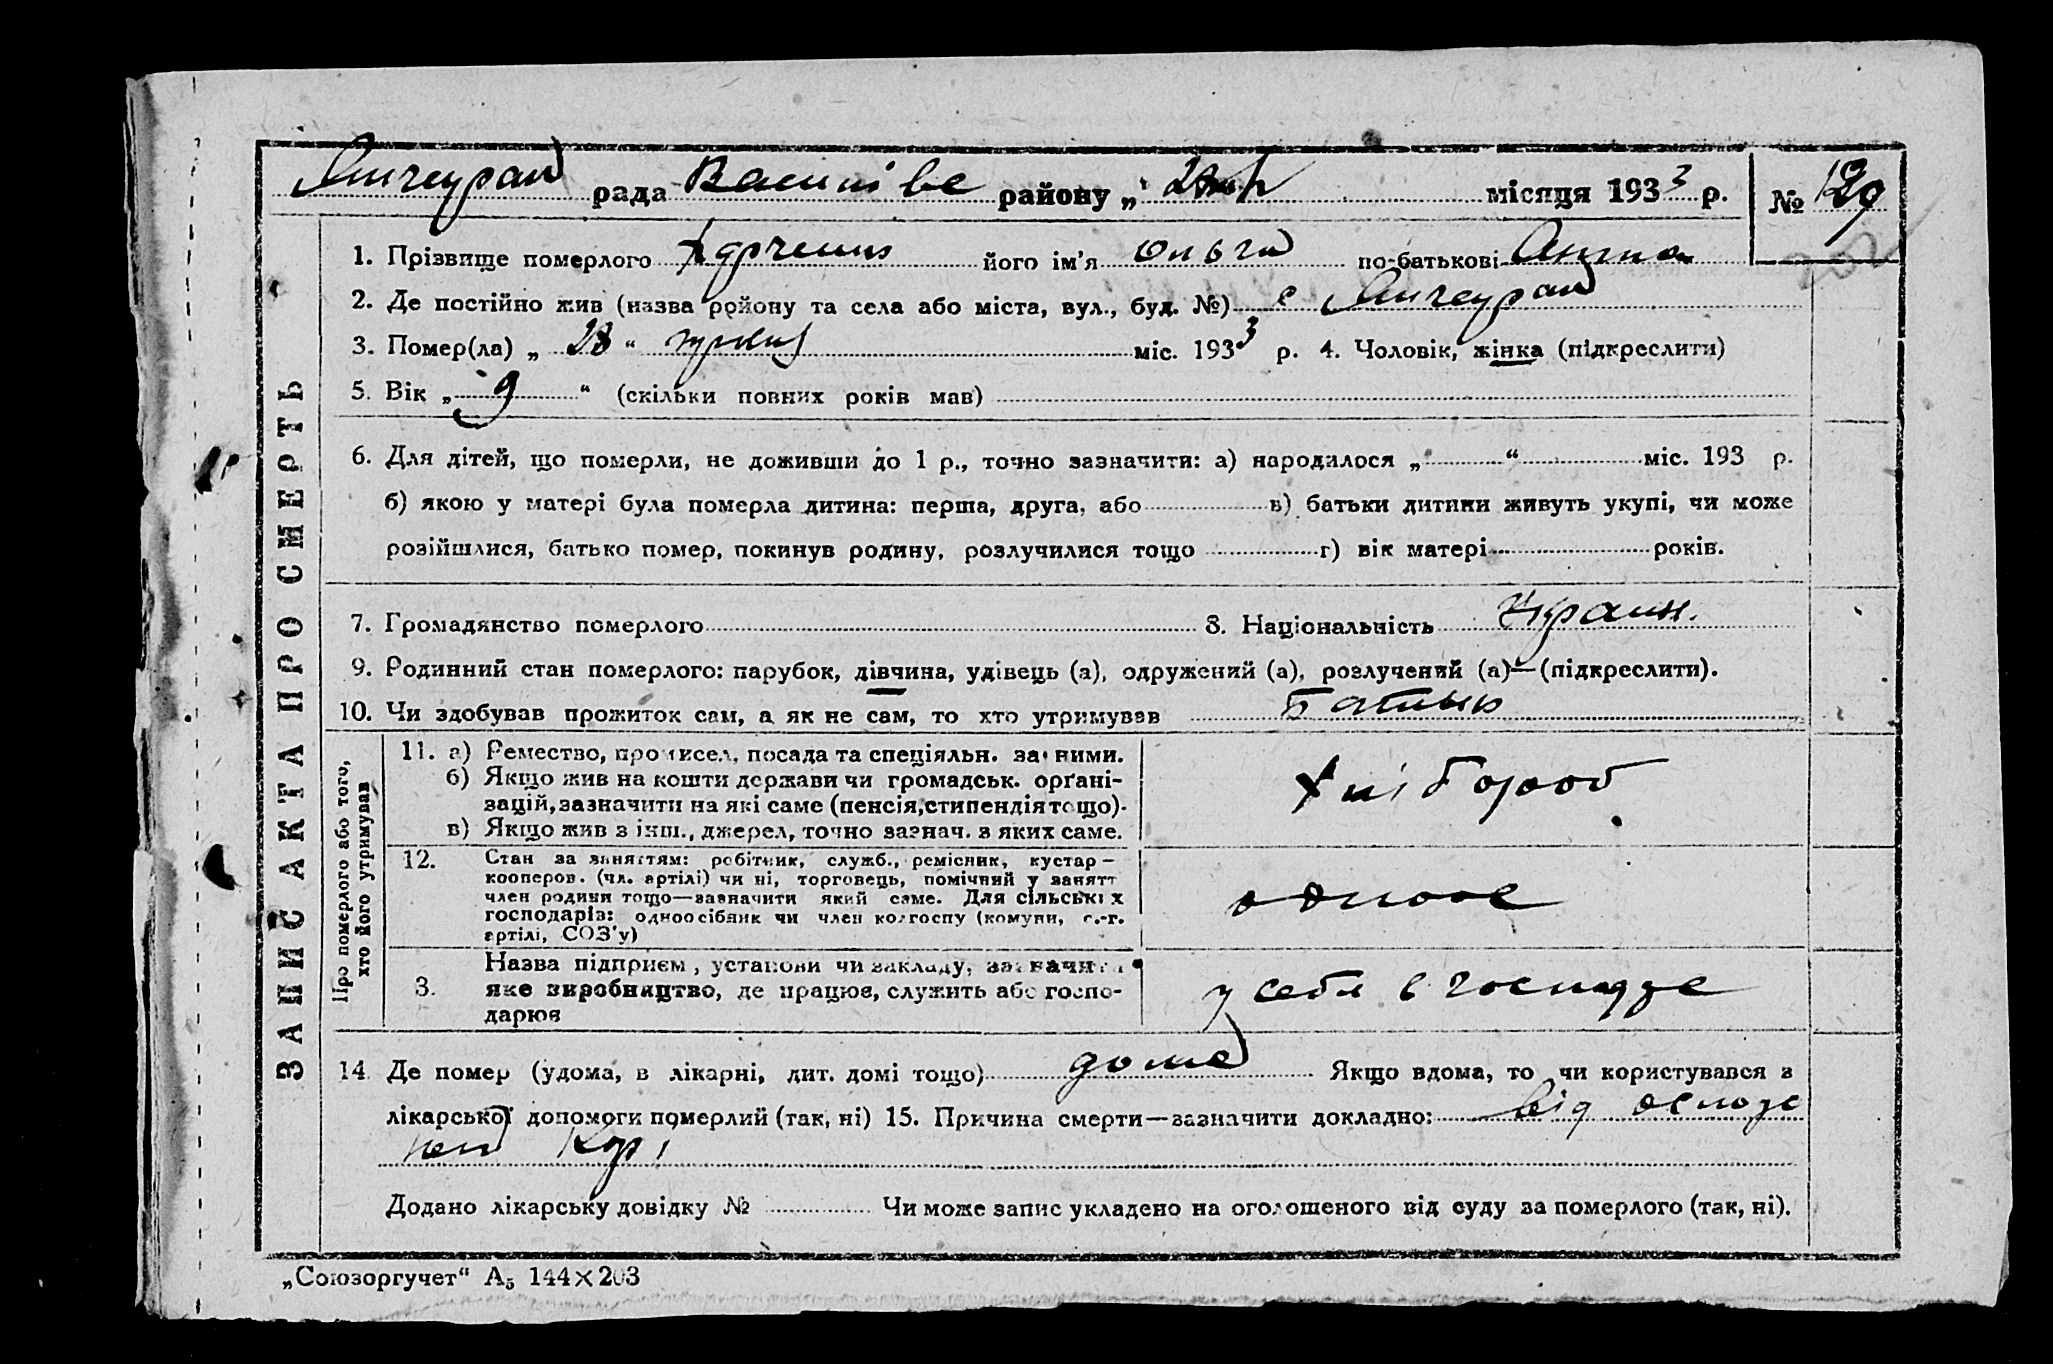 рада району „ місяця 1933 р. №
ЗАПИС АКТА ПРО СМЕРТЬ
1. Прізвище померлого його ім'я Ольга по-батькові
2. Де постійно жив (назва району та села або міста, вул., буд. №) с
3. Помер(ла) „ 28 “ міс. 1933 р. 4. Чоловік, жінка (підкреслити)
5. Вік „ 9 “ (скільки повних років мав)
6. Для дітей, що померли, не доживши до 1 р., точно зазначити: а) народилося „ “ міс. 193 р.
б) якою у матері була померла дитина: перша, друга, або в) батьки дитини живуть укупі, чи може
розійшлися, батько помер, покинув родину, розлучилися тощо г) вік матері років.
7. Громадянство померлого 8. Національність Украин.
9. Родинний стан померлого: парубок, дівчина, удівець (а), одружений (а), розлучений (а)—(підкреслити).
10. Чи здобував прожиток сам, а як не сам, то хто утримував Батько
Про померлого або того,
хто його утримував
11. а) Ремество, промисел, посада та спеціяльн. за ними.
б) Якщо жив на кошти держави чи громадськ. орґані-
зацій, зазначити на які саме (пенсія, стипендія тощо).
в) Якщо жив з інш., джерел, точно зазнач. з яких саме.
хлібороб
12. Стан за заняттям: робітник, служб., ремісник, кустар—
кооперов. (чл. артілі) чи ні, торговець, помічний у занятт
член родини тощо—зазначити який саме. Для сільських
господарів: одноосібник чи член колгоспу (комуни, с.-г.
артілі, СОЗ'у)
3. Назва підприєм, установи чи закладу, зазначити
яке виробництво, де працює, служить або госпо-
дарює
у себя в
14 Де помер (удома, в лікарні, дит. домі тощо) дома Якщо вдома, то чи користувався з
лікарської допомоги померлий (так, ні) 15. Причина смерти—зазначити докладно: від
Додано лікарську довідку № Чи може запис укладено на оголошеного від суду за померлого (так, ні).
„Союзоргучет“ А5 144×203